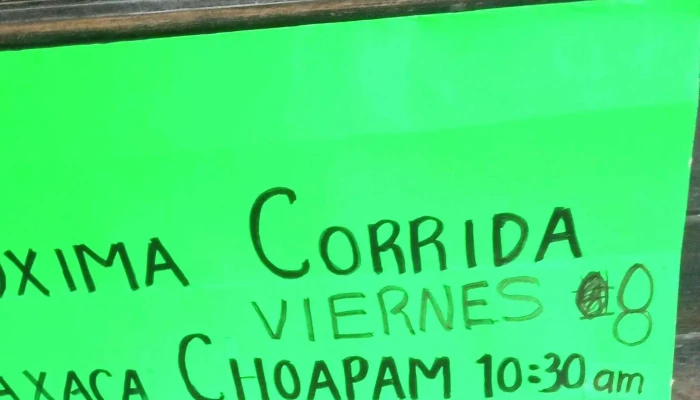 ÓXIMA CORRIDA
VIERNES 8
AXACA CHOAPAM 10:30 am